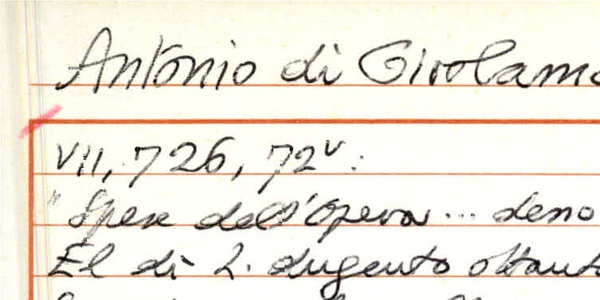 Antonio di Girolamo
VII, 726, 72v:
"Spese dell'opera... deno
El dì 2. dugento ottanta